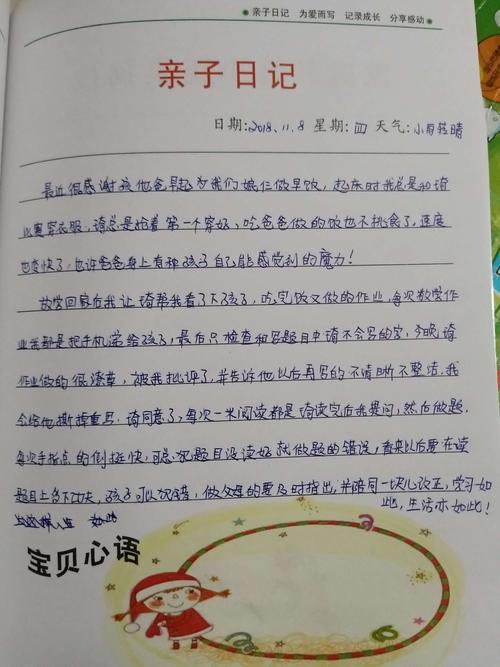 亲子日记 为爱而写 记录成长 分享感动
亲子日记
日期:2018.11.8 星期:四 天气:小雨转晴
最近很感谢孩他爸早起为我们娘仨做早饭,起床时我总是和琦
比赛穿衣服,琦总是抢着第一个穿好,吃爸爸做的饭也不挑食了,速度
也变快了,也许爸爸身上有种孩子自己能感觉到的魔力!
放学回家后我让琦帮我看了下孩子,吃完饭又做的作业,每次数学作
业我都是把手机递给孩子,最后只检查和写题目中琦不会写的字,今晚琦
作业做的很潦草,被我批评了,并告诉他以后再写的不清晰不整洁,我
会给他撕掉重写.琦同意了,每次一米阅读都是琦读完后我提问,然后做题,
每次手指点的倒挺快,可总犯题目没读好就做题的错误,看来以后要在读
题目上多下功夫,孩子可以犯错,做父母的要及时指出,并陪同一块儿改正,学习如
此,生活亦如此!
如此
宝贝心语